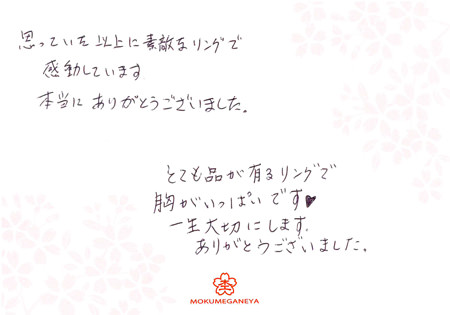 思っていた以上に素敵なリングで
感動しています
本当に ありがとうございました。
とても品が有るリングで
胸がいっぱいです♥
一生大切にします.
ありがとうございました。
杢
MOKUMEGANEYA